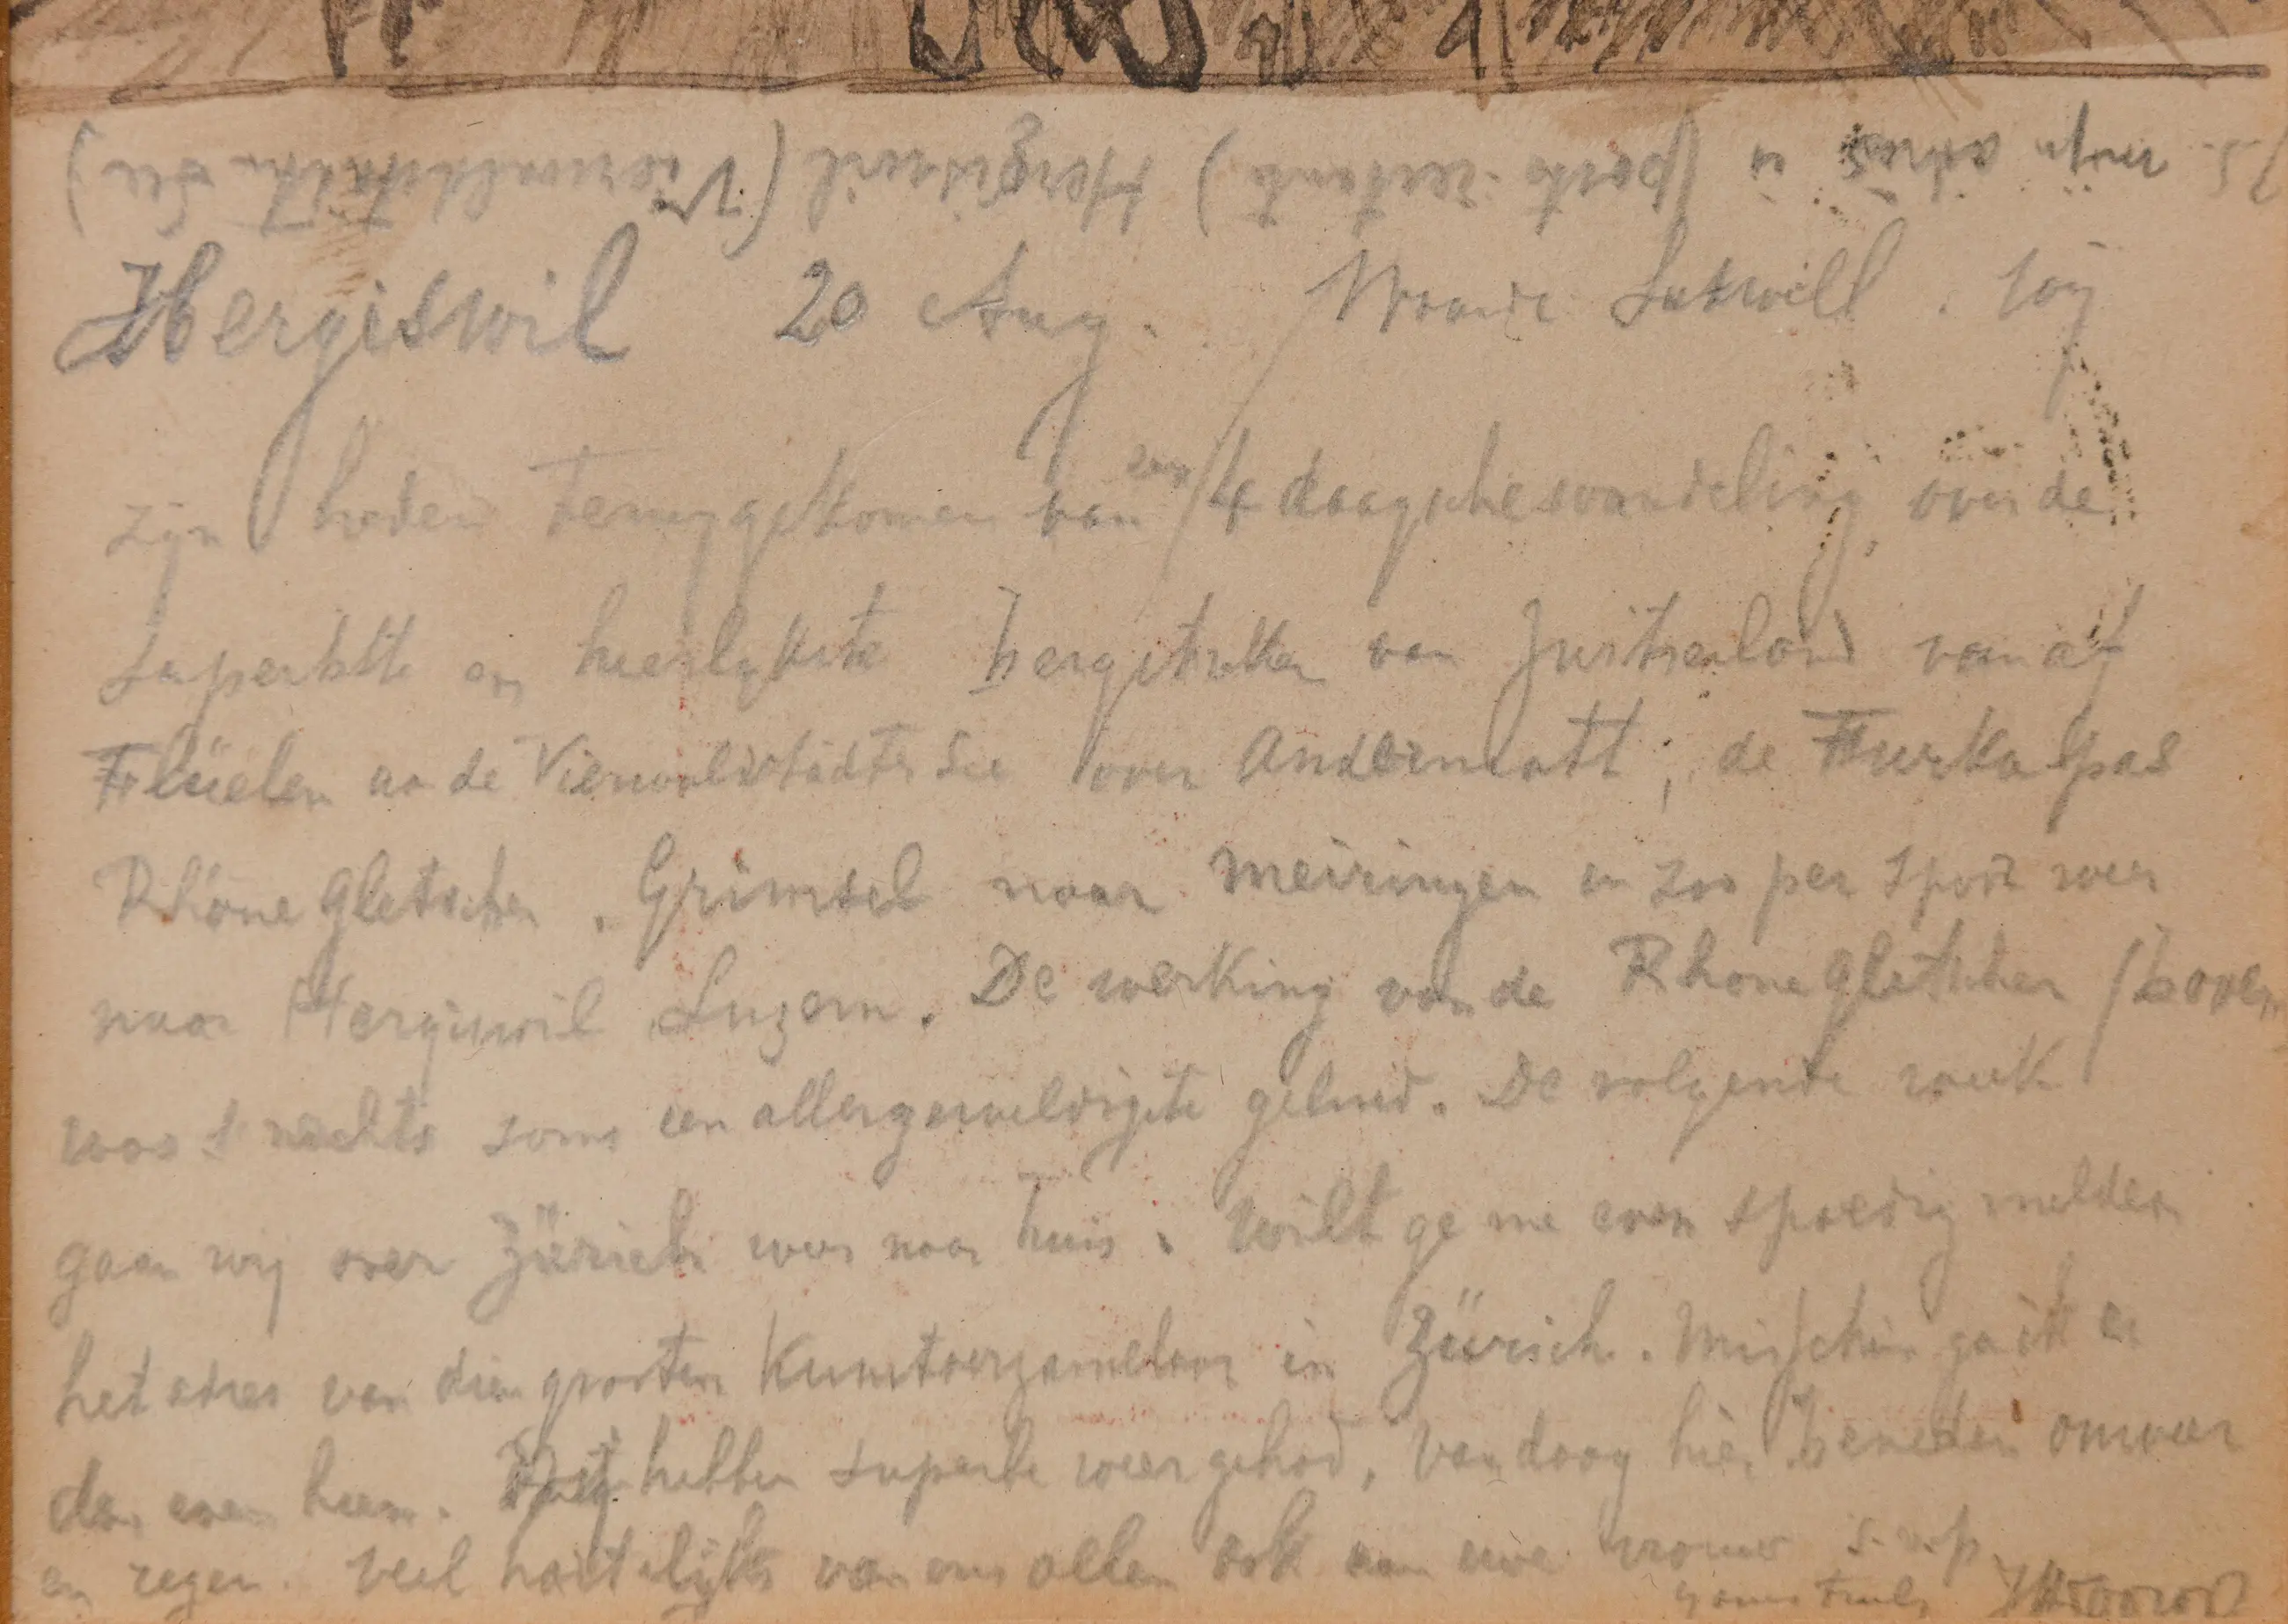 P.S. mijn adres is (poste restante) Hergiswil (Vierwaldstätter See)
Hergiswil 20 Aug. Waarde Lutwill. Wij
zijn heden teruggekomen van een 4 daagsche wandeling over de
superbste en heerlijkste bergstreken van Zwitserland vanaf
Flüelen aan de Vierwaldstädter See over Andermatt, de Furkapas
Rhône gletscher. Grimsel naar Meiringen en zoo per spoor weer
naar Hergiswil Luzern. De werking van de Rhone gletscher (boven
was s nachts soms een allergeweldigste geluid. De volgende week
gaan wij over Zürich weer naar huis. Wilt ge me even spoedig melden
het adres van dien grooten Kunstverzamelaar in Zürich. Misschien ga ik er
dan even heen. Wij hebben superbe weer gehad, vandaag hier beneden onweer
en regen. Veel hartelijks van ons allen ook aan uwe vrouw s.v.p.
yours truly JHToorop